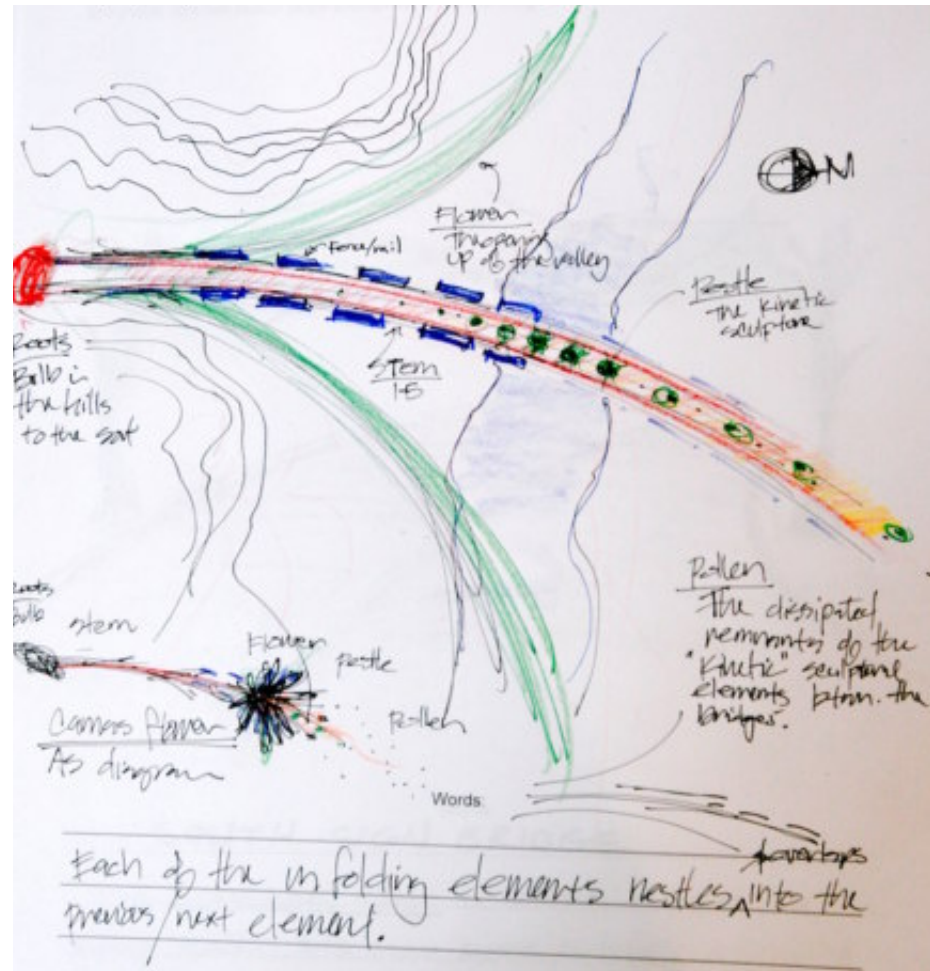 N
Flower
The opening
up of the valley
fence/rail
Pestle
The kinetic
sculpture
Stem
I-5
Roots
Bulb in
the hills
to the sout
Pollen
The dissipated
remnants of the
"kinetic" sculptural
elements btwn. the
bridges.
Roots
Bulb
Stem
Flower
Pestle
Pollen
Camas flower
As diagram
Words:
& overlaps
Each of the unfolding elements nestles ^ into the
previous/next element.